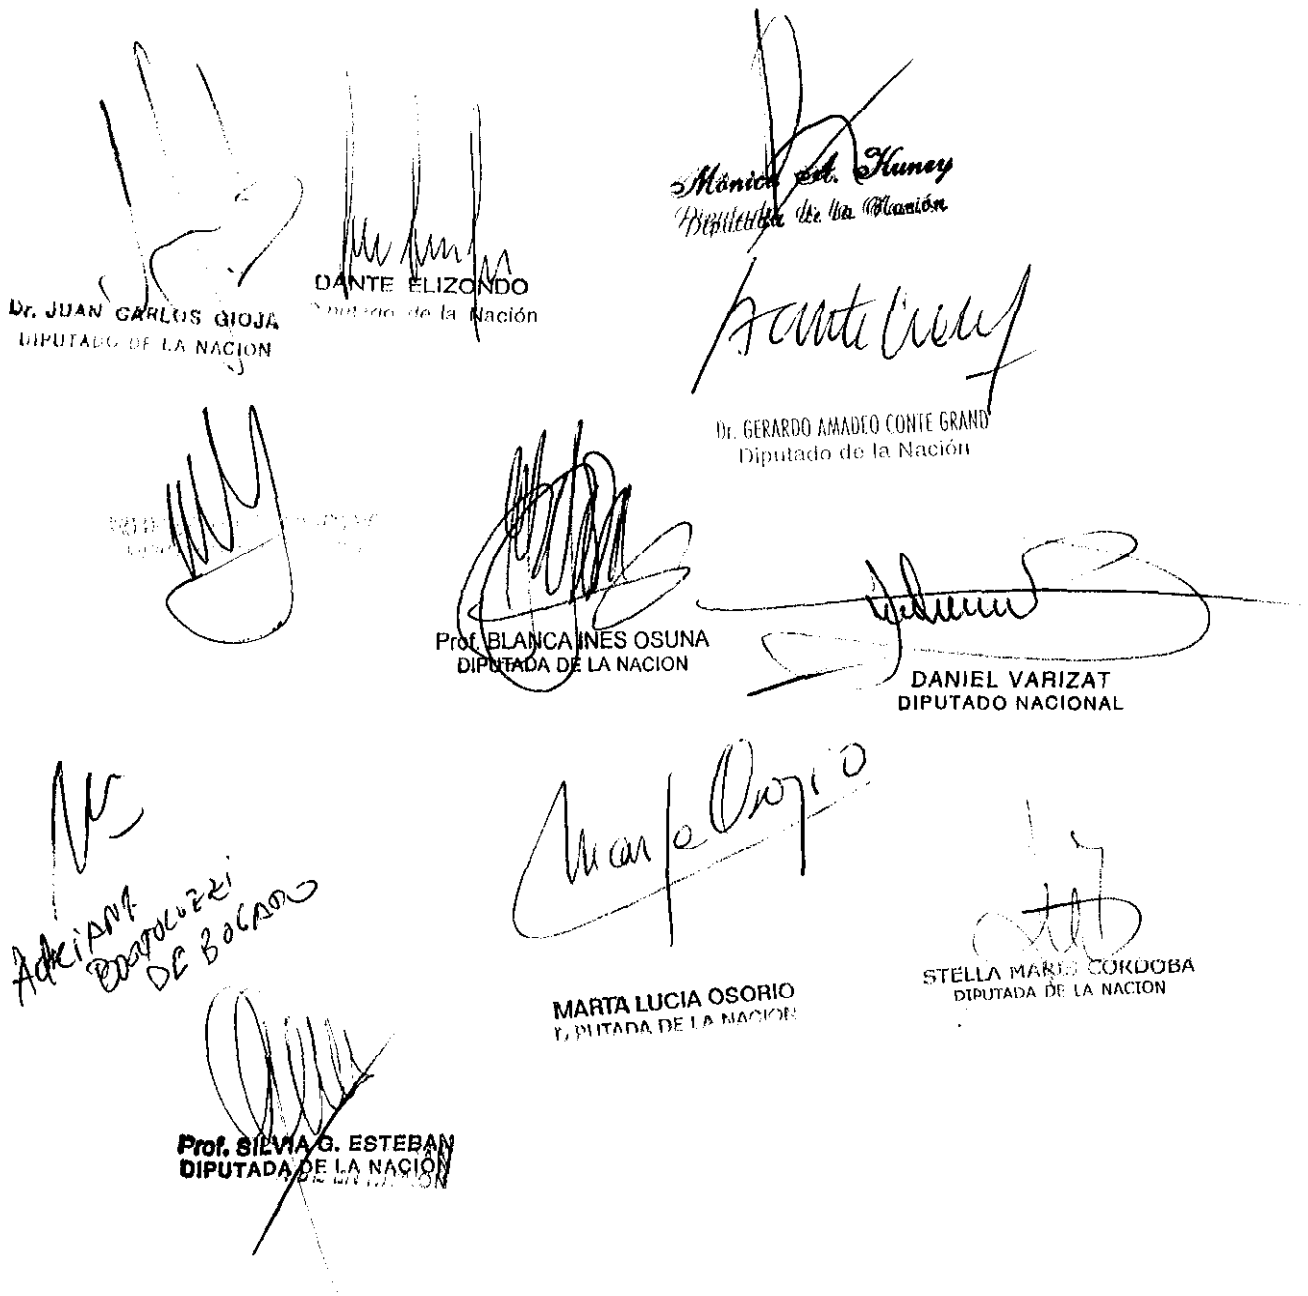 Mónica A. Kuney
Diputada de la Nación
DANTE ELIZONDO
Diputado de la Nación
Dr. JUAN CARLOS GIOJA
DIPUTADO DE LA NACION
Dr. GERARDO AMADEO CONTE GRAND
Diputado de la Nación
Prof. BLANCA INES OSUNA
DIPUTADA DE LA NACION
DANIEL VARIZAT
DIPUTADO NACIONAL
Marta Osorio
ADRIANA
BORTOLOZZI
DE BOGADO
MARTA LUCIA OSORIO
DIPUTADA DE LA NACION
STELLA MARIS CORDOBA
DIPUTADA DE LA NACION
Prof. SILVIA G. ESTEBAN
DIPUTADA DE LA NACIÓN